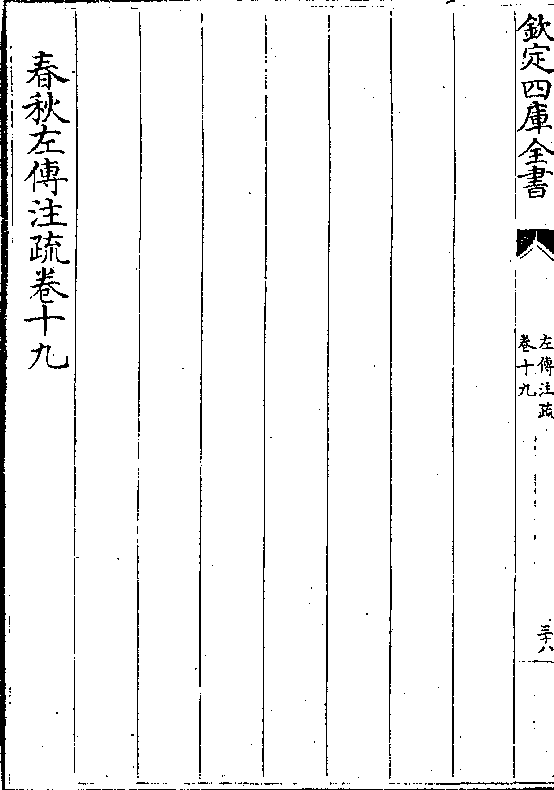 欽定四庫全書
左傳注疏
卷十九
三十八
春秋左傳注疏卷十九